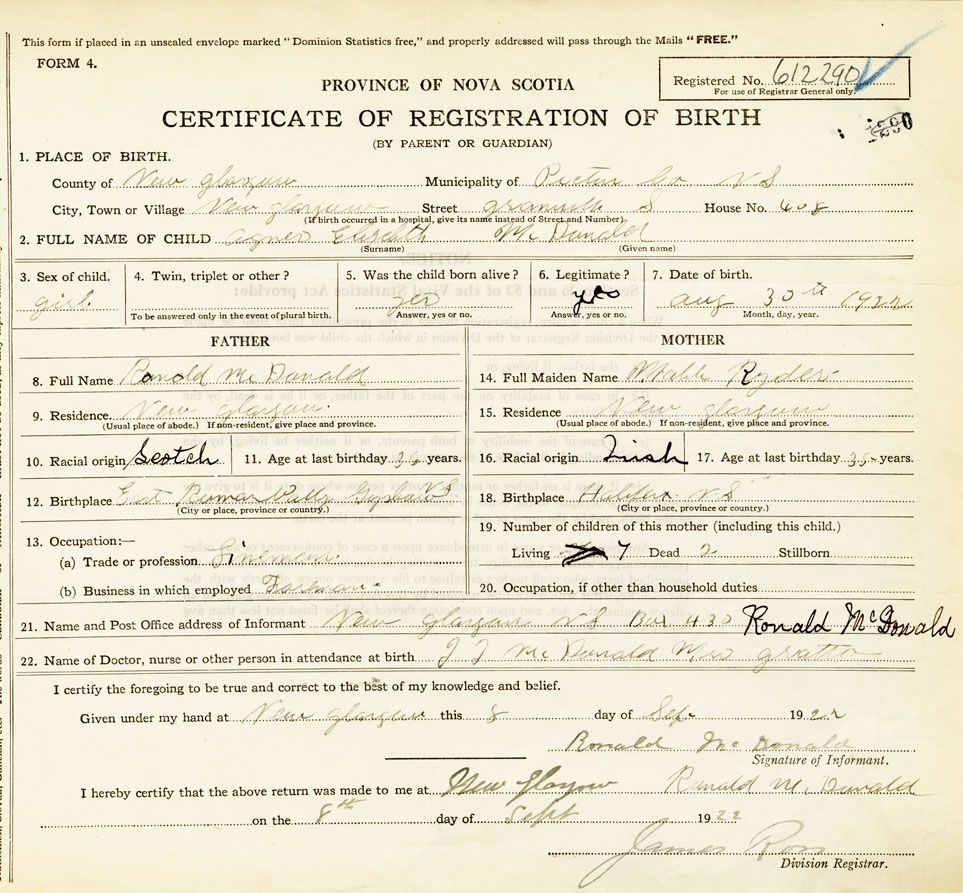 This form if placed in an unsealed envelope marked "Dominion Statistics free," and properly addressed will pass through the Mails "FREE."
FORM 4.
Registered No. 612290
For use of Registrar General only.
PROVINCE OF NOVA SCOTIA
CERTIFICATE OF REGISTRATION OF BIRTH
(BY PARENT OR GUARDIAN)
1. PLACE OF BIRTH.
County of New Glasgow Municipality of Pictou Co N S
City, Town or Village New Glasgow Street Granville S House No. 408
(If birth occurred in a hospital, give its name instead of Street and Number)
2. FULL NAME OF CHILD Agnes Elizabeth McDonald
(Surname) (Given name)
3. Sex of child. 4. Twin, triplet or other? 5. Was the child born alive? 6. Legitimate? 7. Date of birth.
girl. yes yes Aug 30th 1922
To be answered only in the event of plural birth. Answer, yes or no. Answer, yes or no. Month, day, year.
FATHER MOTHER
8. Full Name Ronald McDonald 14. Full Maiden Name Ryder
9. Residence. New Glasgow. 15. Residence New Glasgow
(Usual place of abode.) If non-resident, give place and province. (Usual place of abode.) If non-resident, give place and province.
10. Racial origin Scotch 11. Age at last birthday 36 years. 16. Racial origin Irish 17. Age at last birthday 35 years.
12. Birthplace East N S 18. Birthplace Halifax N S
(City or place, province or country.) (City or place, province or country.)
19. Number of children of this mother (including this child.)
13. Occupation:—
(a) Trade or profession Lineman Living 7 Dead 2 Stillborn
(b) Business in which employed 20. Occupation, if other than household duties
21. Name and Post Office address of Informant New Glasgow N S Box 430 Ronald McDonald
22. Name of Doctor, nurse or other person in attendance at birth J J McDonald Mrs
I certify the foregoing to be true and correct to the best of my knowledge and belief.
Given under my hand at New Glasgow this 8 day of Sep. 1922
Ronald McDonald
Signature of Informant.
I hereby certify that the above return was made to me at New Glasgow Ronald McDonald
on the 8th day of Sept 1922
James Ross
Division Registrar.